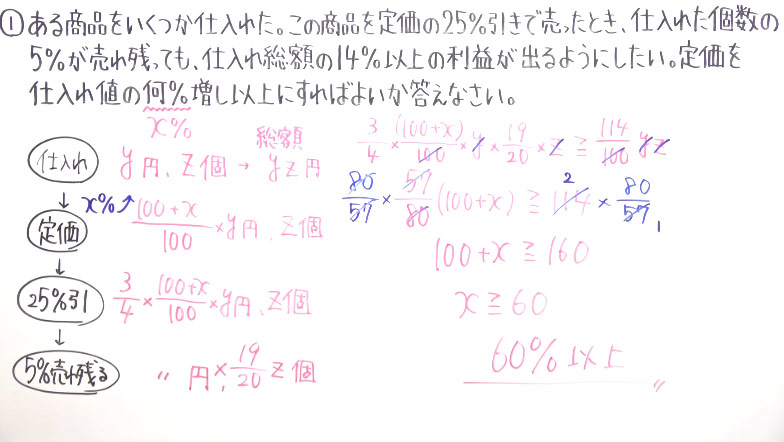 ① ある商品をいくつか仕入れた。この商品を定価の25%引きで売ったとき、仕入れた個数の
5%が売れ残っても、仕入れ総額の14%以上の利益が出るようにしたい。定価を
仕入れ値の何%増し以上にすればよいか答えなさい。
x%
仕入れ y円、z個 → 総額 yz円
↓ x%↑
定価 (100+x)/100 × y円、z個
↓
25%引 3/4 × (100+x)/100 × y円、z個
↓
5%売れ残る 〃 円 × 19/20 z個
3/4 × (100+x)/100 × y × 19/20 × z ≧ 114/100 yz
80/57 × 57/80 (100+x) ≧ 114 × 80/57
2 1
100+x ≧ 160
x ≧ 60
60%以上 〃